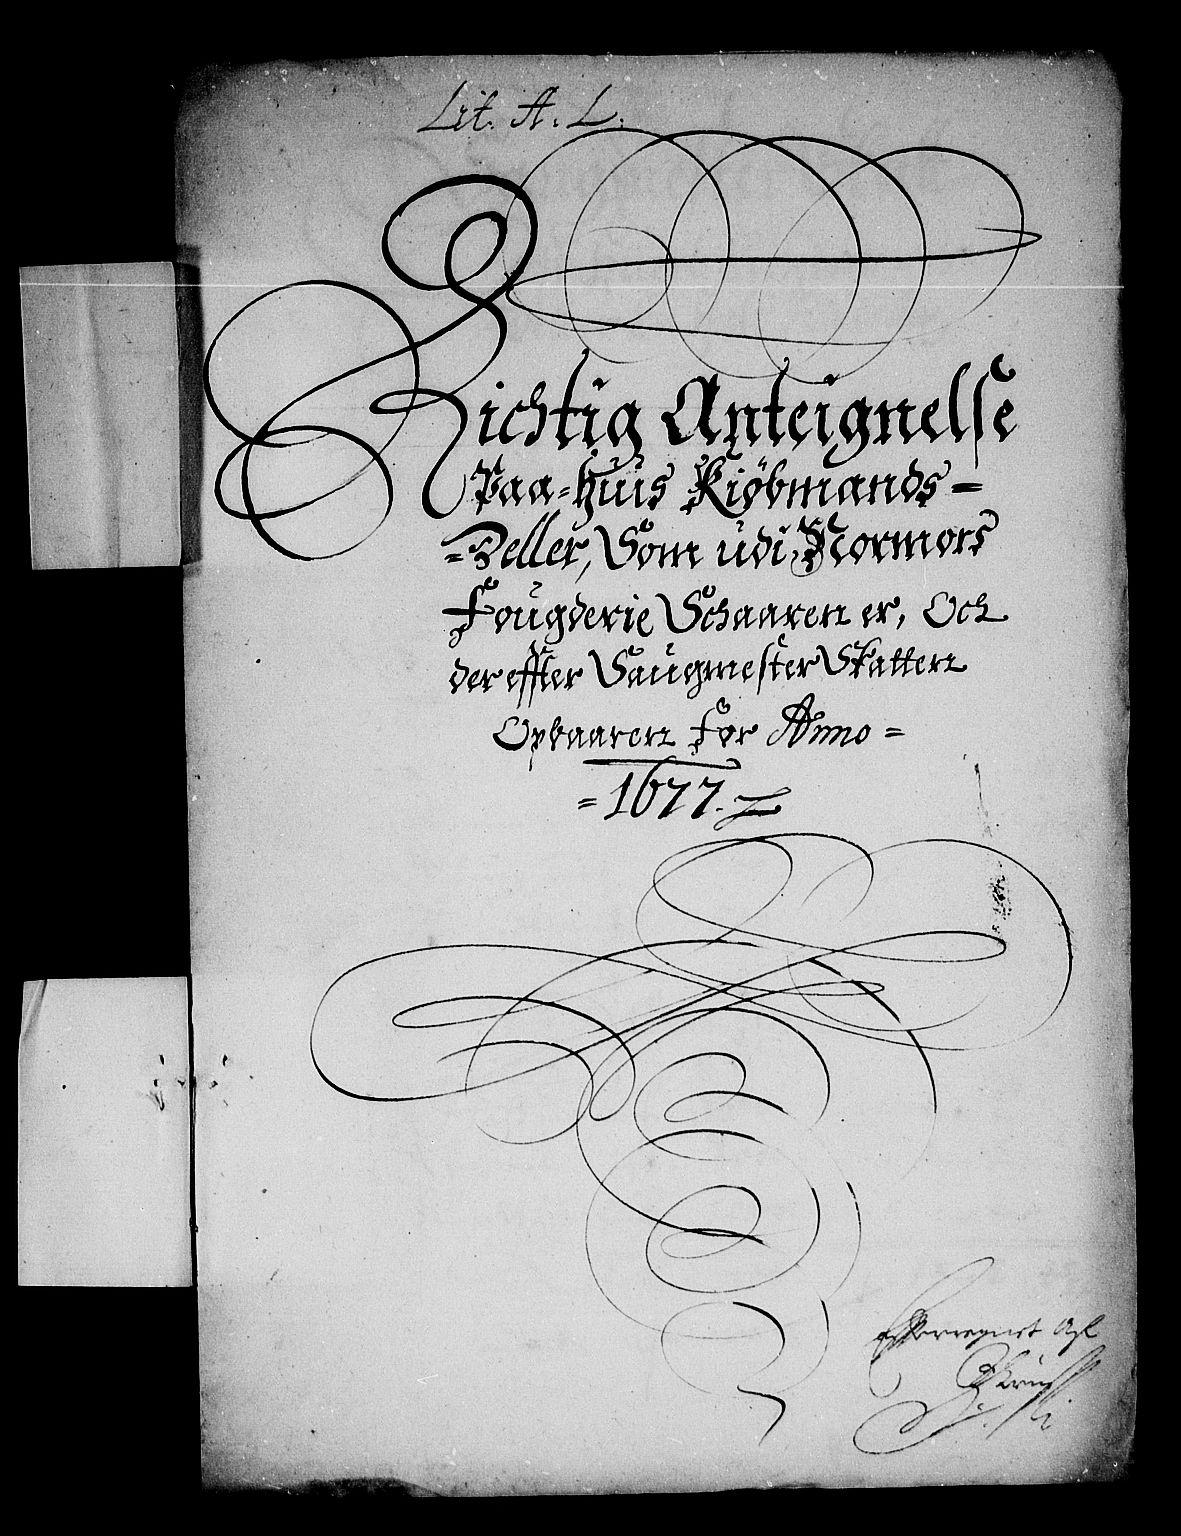 Lit. A. L.
Richtig Anteignelse
Paa-huis Kiöbmands=
=Zeller, Som udi Normors
Fougderie Schaaren er, Och
der effter Saugmester Skatten
Opbaaren for Anno=
=1677.